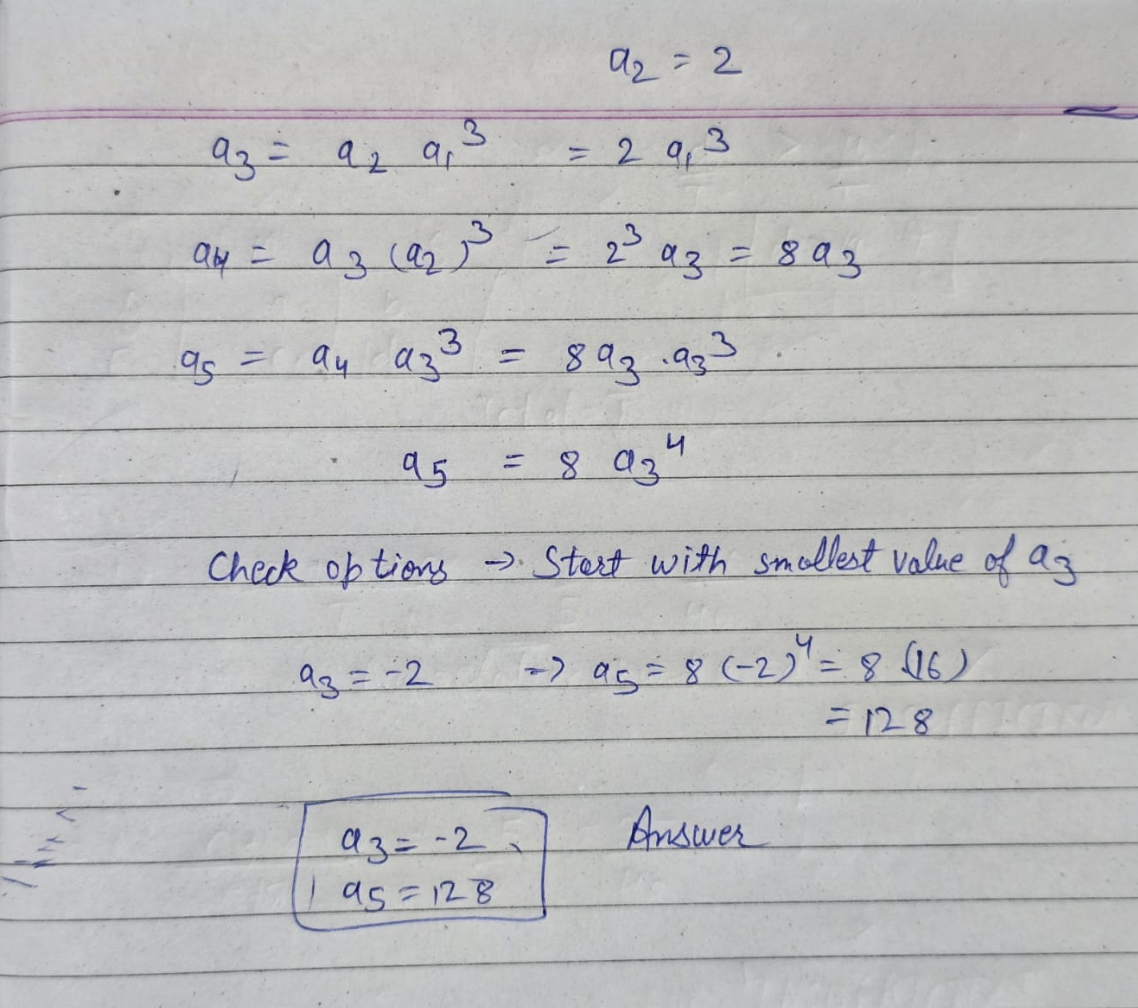 a₂ = 2
a₃ = a₂ a₁³ = 2 a₁³
a₄ = a₃ (a₂)³ = 2³ a₃ = 8 a₃
a₅ = a₄ a₃³ = 8 a₃ . a₃³
a₅ = 8 a₃⁴
Check options → Start with smallest value of a₃
a₃ = -2 → a₅ = 8 (-2)⁴ = 8 (16)
= 128
a₃ = -2, Answer
a₅ = 128